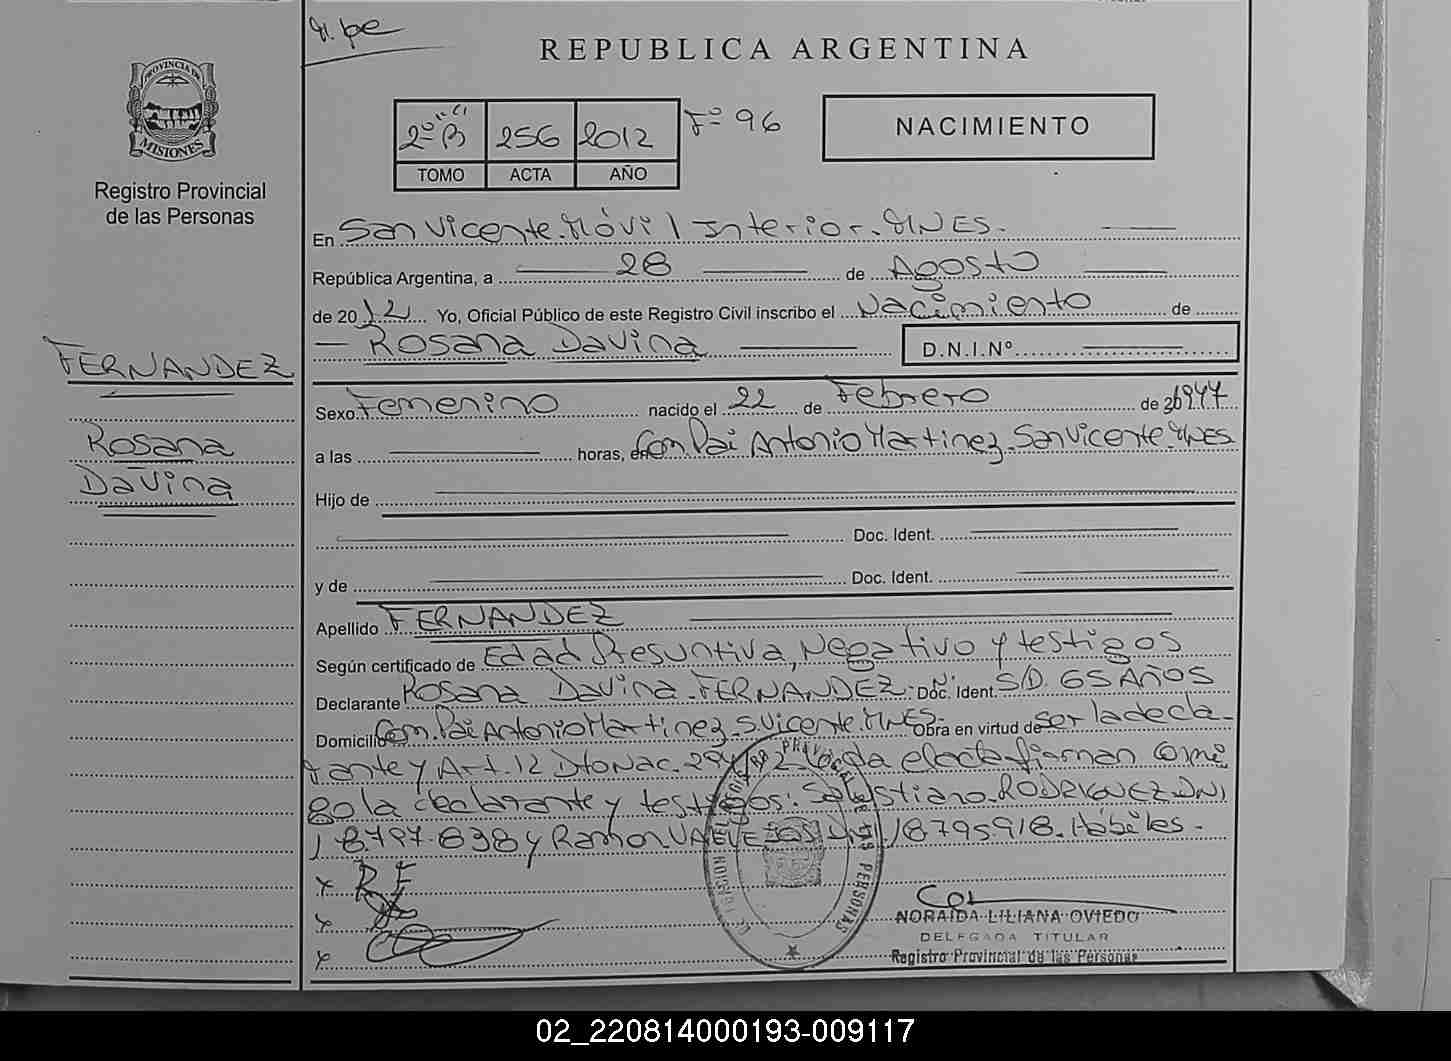 M. pe
REPUBLICA ARGENTINA
PROVINCIA DE
MISIONES
Registro Provincial
de las Personas
2º B 256 2012 Fº 96
TOMO ACTA AÑO
NACIMIENTO
En San Vicente. Móvil Interior. MNES.
República Argentina, a 28 de Agosto
de 2012 Yo, Oficial Público de este Registro Civil inscribo el Nacimiento de
Rosana Davina D.N.I.Nº
FERNANDEZ
Rosana
Davina
Sexo Femenino nacido el 22 de Febrero de 1947
a las horas, en Com. Pai Antonio Martinez. San Vicente MNES
Hijo de
Doc. Ident.
y de Doc. Ident.
Apellido FERNANDEZ
Según certificado de Edad Presuntiva, Negativo y testigos
Declarante Rosana Davina. FERNANDEZ. Doc. Ident. S/D. 65 AÑOS
Domicilio Com. Pai Antonio Martinez. S. Vicente. MNES. Obra en virtud de ser la decla-
rante y Art. 12 Dto Nac. Leída el acta firman conmi
go la declarante y testigos: Salustiano. RODRIGUEZ. DNI
18.797.838 y Ramon 18795918. Hábiles.
x R F
x
x
NORAIDA LILIANA OVIEDO
DELEGADA TITULAR
Registro Provincial de las Personas
02_220814000193-009117